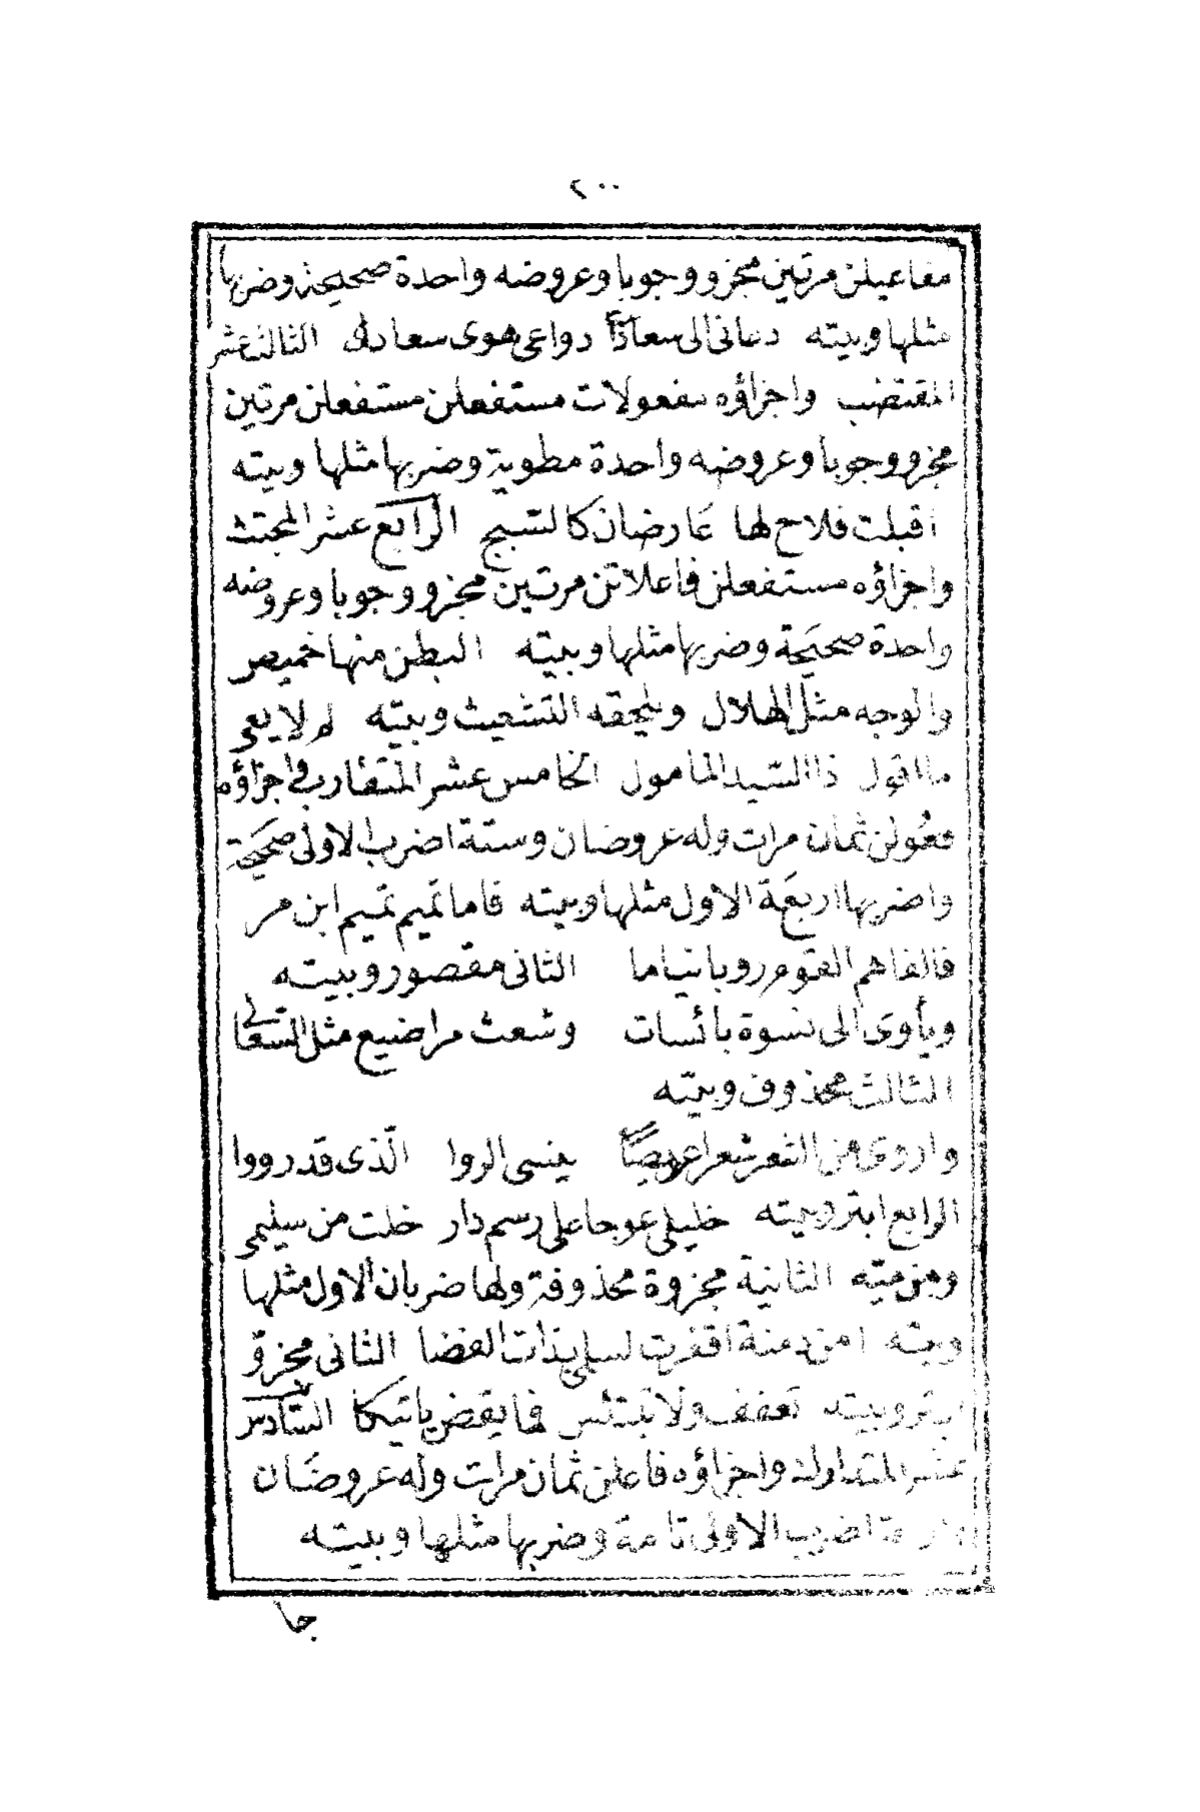 ٢٠٠
مفاعيلن مرتين مجزو وجوبا وعروضه واحدة صحيحة وضربها
مثلها وبيته دعانى الى سعادًا دواعى هوى سعاد الثالث عشر
المقتضب واجزاؤه مفعولات مستفعلن مستفعلن مرتين
مجزو وجوبا وعروضه واحدة مطوية وضربها مثلها وبيته
اقبلت فلاح لها عَارضان كالسّبج الرابع عشر المجتث
واجزاؤه مستفعلن فاعلاتن مرتين مجزو وجوبا وعروضه
واحدة صحيَحة وضربها مثلها وبيته البطن منها خميص
والوجه مثل الهلال ويلحقه التشعيث وبيّته لم لا يعى
ما اقول ذا السّيد المامول الخامس عشر المتقارب واجزاؤه
فعُولن ثمان مرات وله عروضان وستة اضرب الاولى صَحيحة
واضربها اربعَة الاول مثلها وبيته فاما تميم تميم ابن مر
فالفاهم القوم روبا نياما الثانى مقصور وبيته
ويأوى الى نسوة بائسات وشعث مراضيع مثل السّعالى
الثالث محذوف وبيته
واروى من الشعر شعرا عويصًا ينسى الروا الّذى قد رووا
الرابع ابتر وبيته خليلى عوجا على رسم دار خلت من سليمى
ومن ميّه الثانية مجزوة محذوفة ولها ضربان الاول مثلها
وبيته امن دمنة اقفرت لسلمى بذات الغضا الثانى مجزو
ابتر وبيته تعفف ولا تبتئس فما يقض ياتيكا السّادس
عشر المتدارك واجزاؤه فاعلن ثمان مرات وله عروضَان
اضرب الاولى تامة وضربها مثلها وبيته
جا